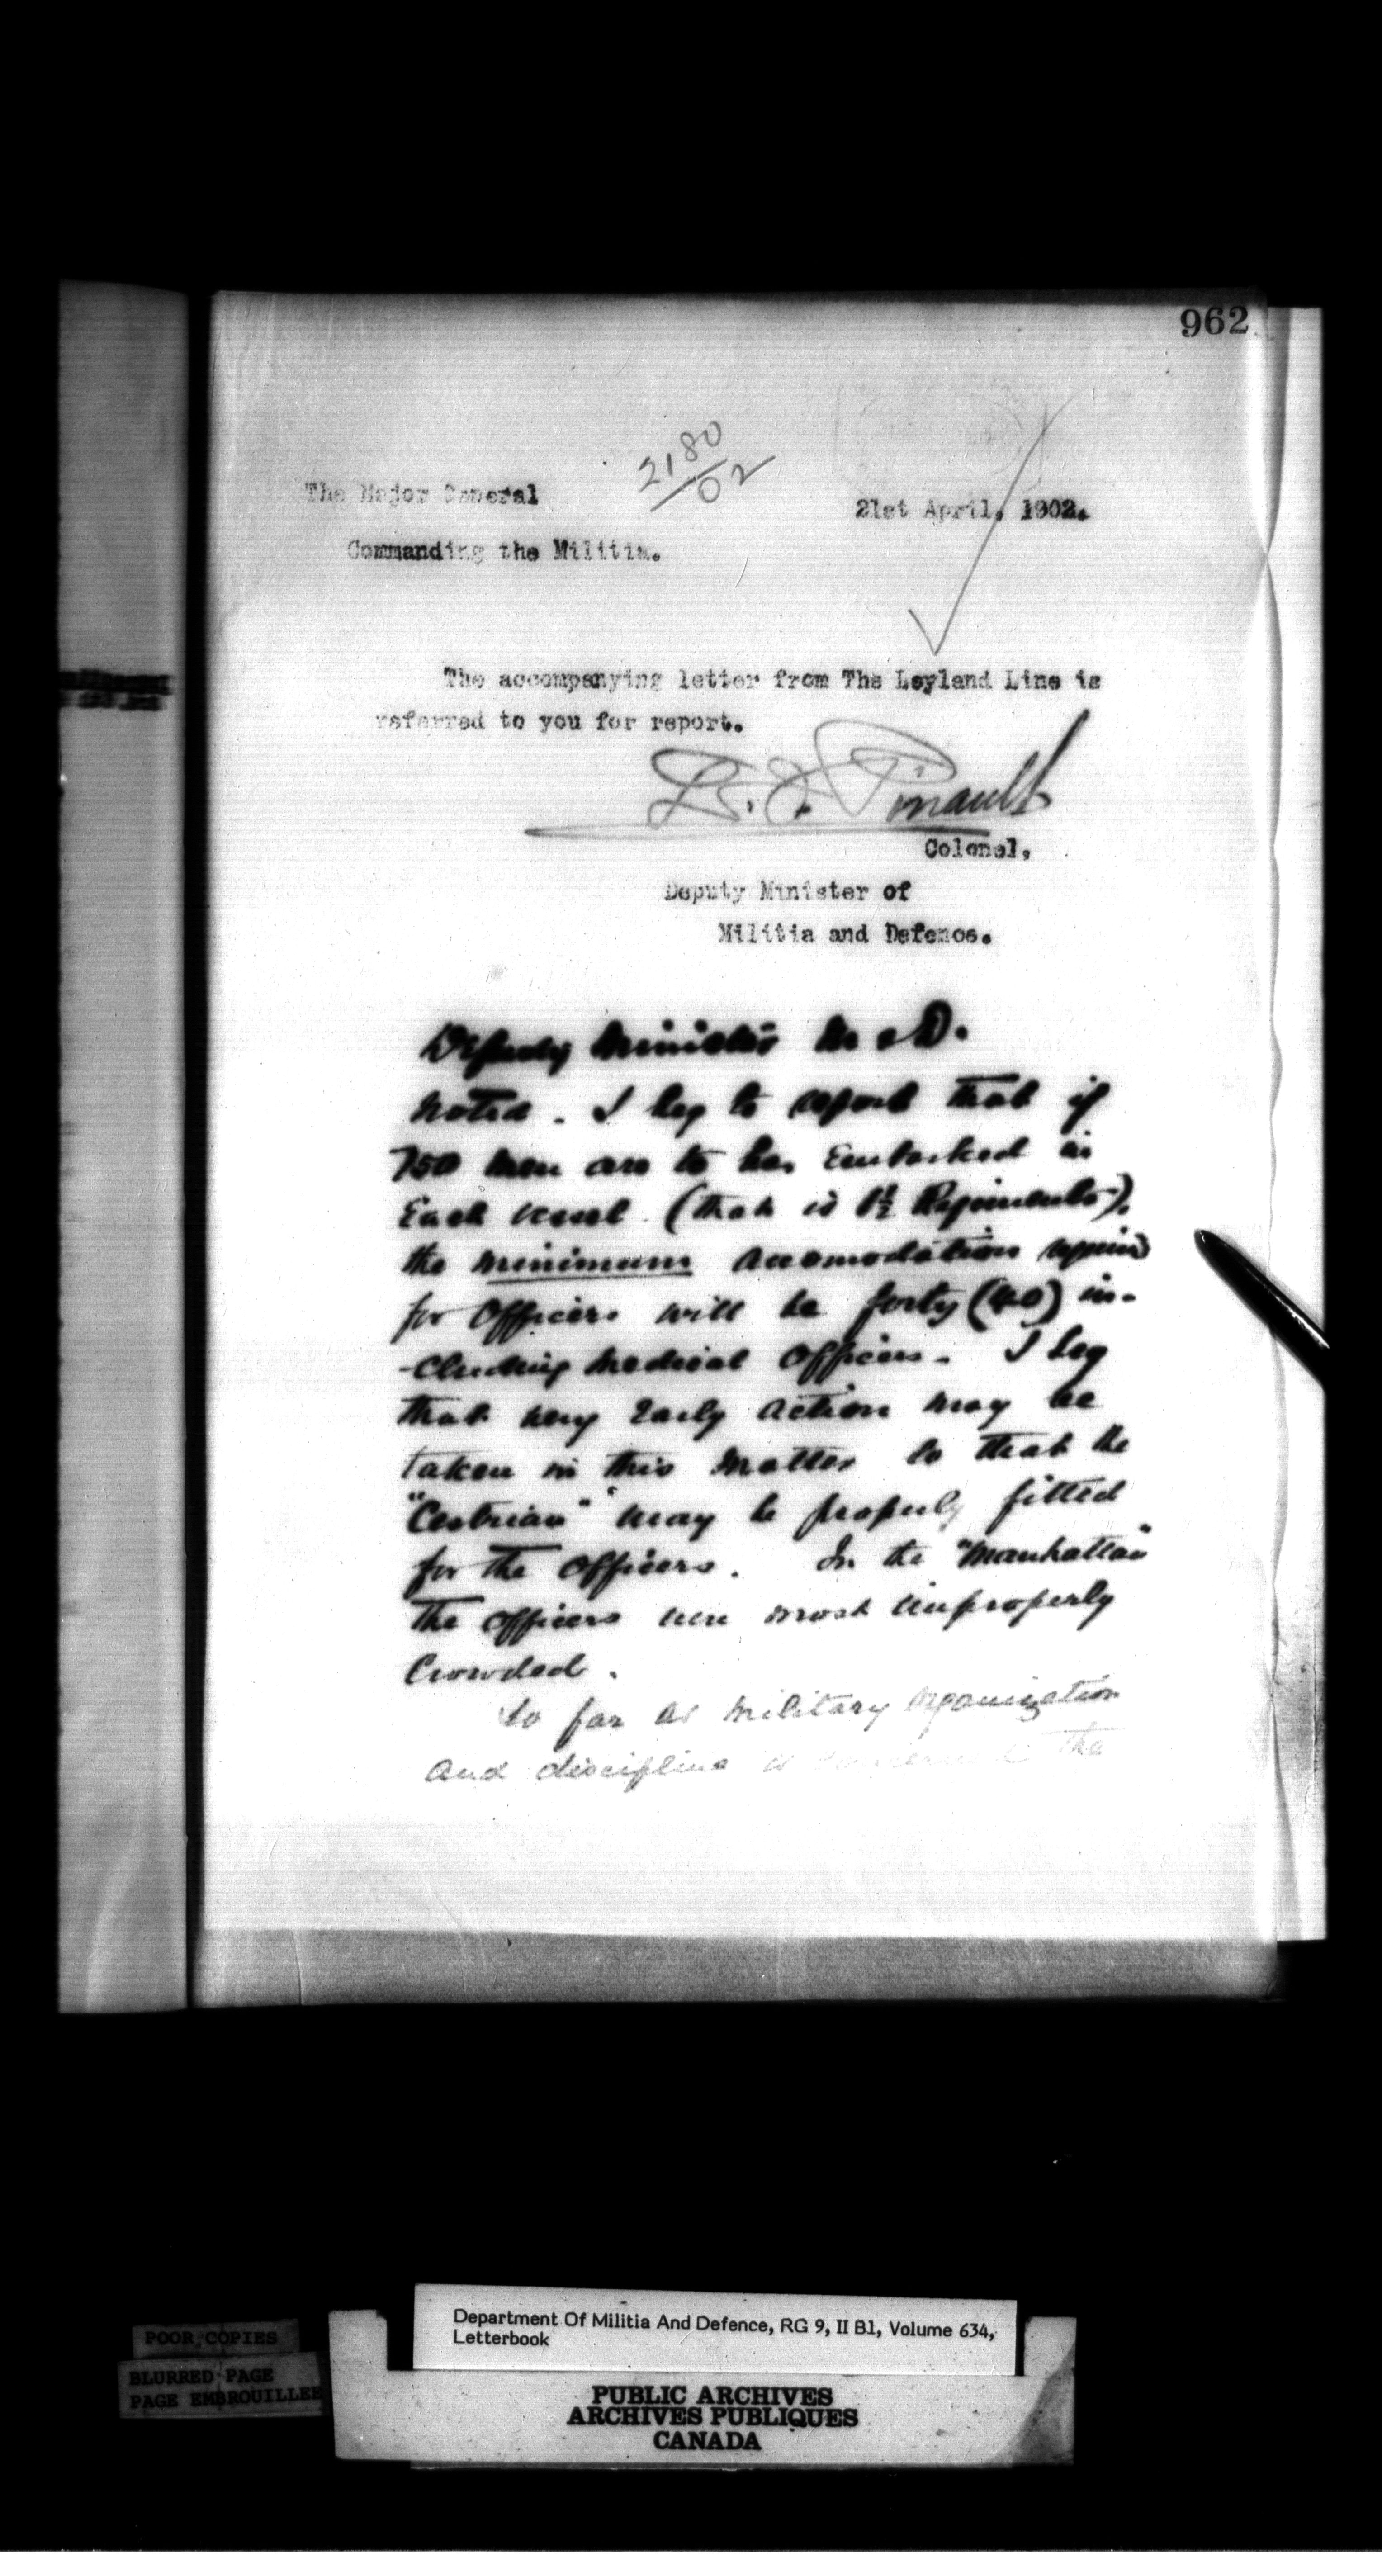 962
2180/02
The Major General
21st April, 1902.
Commanding the Militia.
The accompanying letter from The Leyland Line is
referred to you for report.
L. F. Pinault
Colonel,
Deputy Minister of
Militia and Defence.
Deputy Minister M & D.
Noted. I beg to report that if
750 men are to be embarked in
Each vessel (that is 1½ Regiments),
the minimum accomodation
for Officers will be forty (40) in-
-cluding Medical Officers. I beg
that very early action may be
taken in this matter so that the
"Cestrian" may be properly fitted
for the Officers. In the "Manhattan"
the Officers were most improperly
Crowded.
So far as military organization
and discipline is concerned the
Department Of Militia And Defence, RG 9, II B1, Volume 634,
Letterbook
POOR COPIES
BLURRED PAGE
PAGE EMBROUILLEE
PUBLIC ARCHIVES
ARCHIVES PUBLIQUES
CANADA